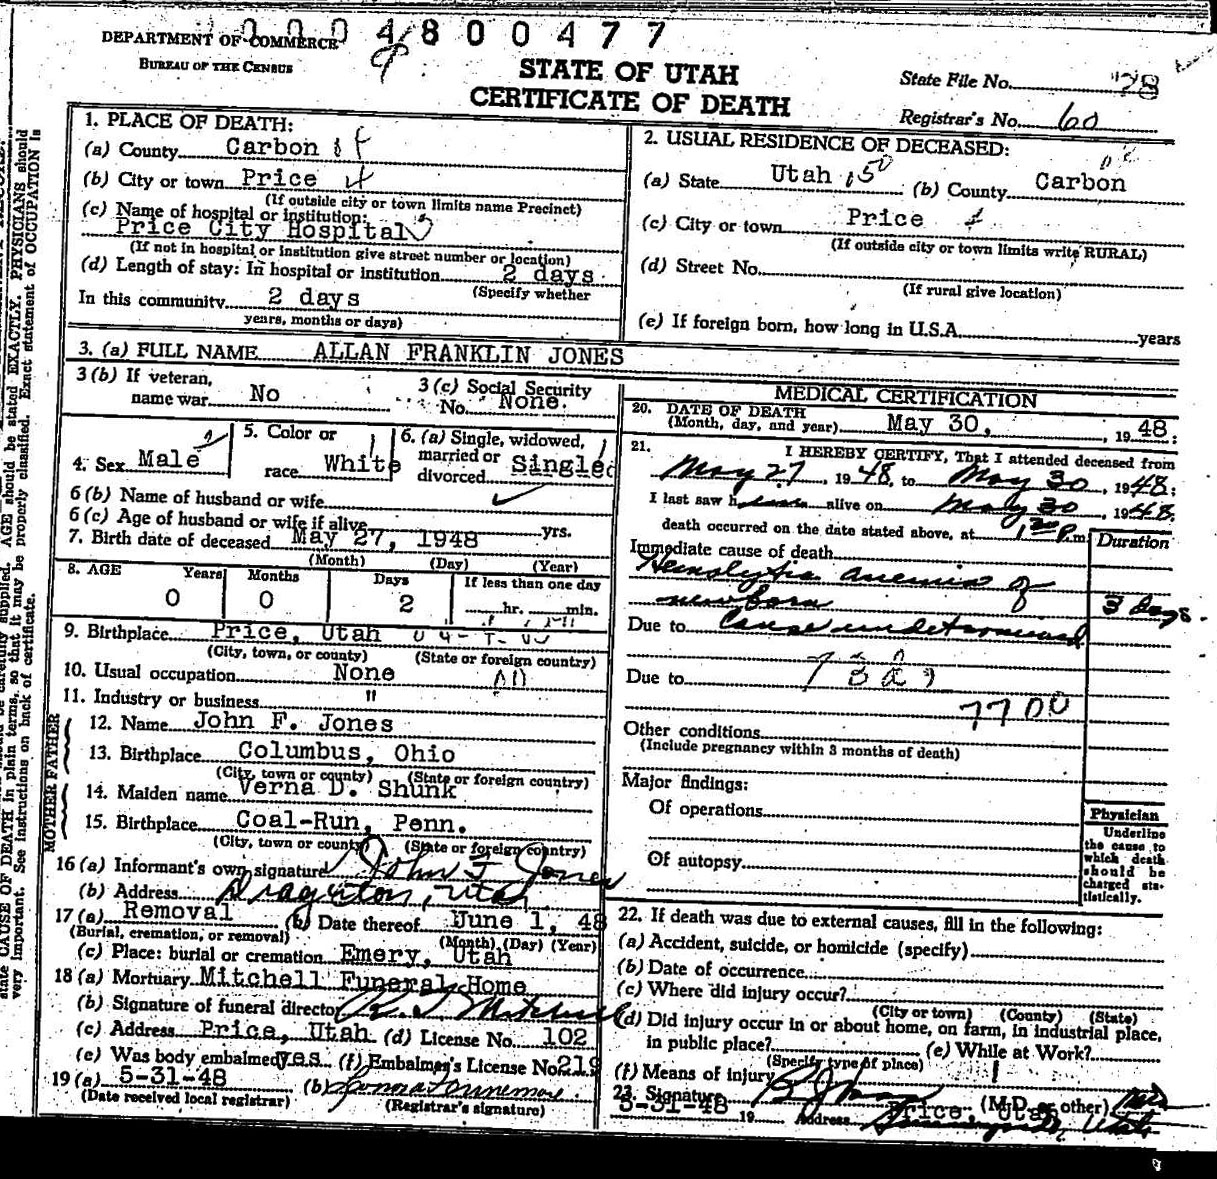 0004800477
DEPARTMENT OF COMMERCE
BUREAU OF THE CENSUS
STATE OF UTAH
CERTIFICATE OF DEATH
State File No. 78
Registrar's No. 60
1. PLACE OF DEATH:
(a) County Carbon
(b) City or town Price
(If outside city or town limits name Precinct)
(c) Name of hospital or institution:
Price City Hospital
(If not in hospital or institution give street number or location)
(d) Length of stay: In hospital or institution 2 days
(Specify whether
In this community 2 days
years, months or days)
2. USUAL RESIDENCE OF DECEASED:
(a) State Utah (b) County Carbon
(c) City or town Price
(If outside city or town limits write RURAL)
(d) Street No.
(If rural give location)
(e) If foreign born, how long in U.S.A. years
3. (a) FULL NAME ALLAN FRANKLIN JONES
3 (b) If veteran,
name war No
3 (c) Social Security
No. None.
4. Sex Male
5. Color or
race White
6. (a) Single, widowed,
married or
divorced Single
6 (b) Name of husband or wife
6 (c) Age of husband or wife if alive yrs.
7. Birth date of deceased May 27, 1948
(Month) (Day) (Year)
8. AGE Years Months Days If less than one day
0 0 2 hr. min.
9. Birthplace Price, Utah
(City, town, or county) (State or foreign country)
10. Usual occupation None
11. Industry or business "
FATHER
12. Name John F. Jones
13. Birthplace Columbus, Ohio
(City, town or county) (State or foreign country)
MOTHER
14. Maiden name Verna D. Shunk
15. Birthplace Coal-Run, Penn.
(City, town or county) (State or foreign country)
16 (a) Informant's own signature John F Jones
(b) Address Dragerton, Utah
17 (a) Removal (b) Date thereof June 1, 48
(Burial, cremation, or removal) (Month) (Day) (Year)
(c) Place: burial or cremation Emery, Utah
18 (a) Mortuary Mitchell Funeral Home
(b) Signature of funeral director Mitchell
(c) Address Price, Utah (d) License No. 102
(e) Was body embalmed yes (f) Embalmer's License No. 219
19 (a) 5-31-48 (b)
(Date received local registrar) (Registrar's signature)
MEDICAL CERTIFICATION
20. DATE OF DEATH
(Month, day, and year) May 30, , 1948;
21. I HEREBY CERTIFY, That I attended deceased from
May 27, 1948, to May 30, 1948;
I last saw h alive on May 30, 1948,
death occurred on the date stated above, at p.m.
Duration
Immediate cause of death
Hemolytic anemia of
newborn 3 Days.
Due to Cause undetermined
Due to
7700
Other conditions
(Include pregnancy within 3 months of death)
Major findings:
Of operations
Of autopsy
Physician
Underline
the cause to
which death
should be
charged sta-
tistically.
22. If death was due to external causes, fill in the following:
(a) Accident, suicide, or homicide (specify)
(b) Date of occurrence
(c) Where did injury occur?
(City or town) (County) (State)
(d) Did injury occur in or about home, on farm, in industrial place,
in public place? (e) While at Work?
(Specify type of place)
(f) Means of injury
23. Signature (M.D. or other) MD
5-31-48 19 Address Price, Utah
Utah